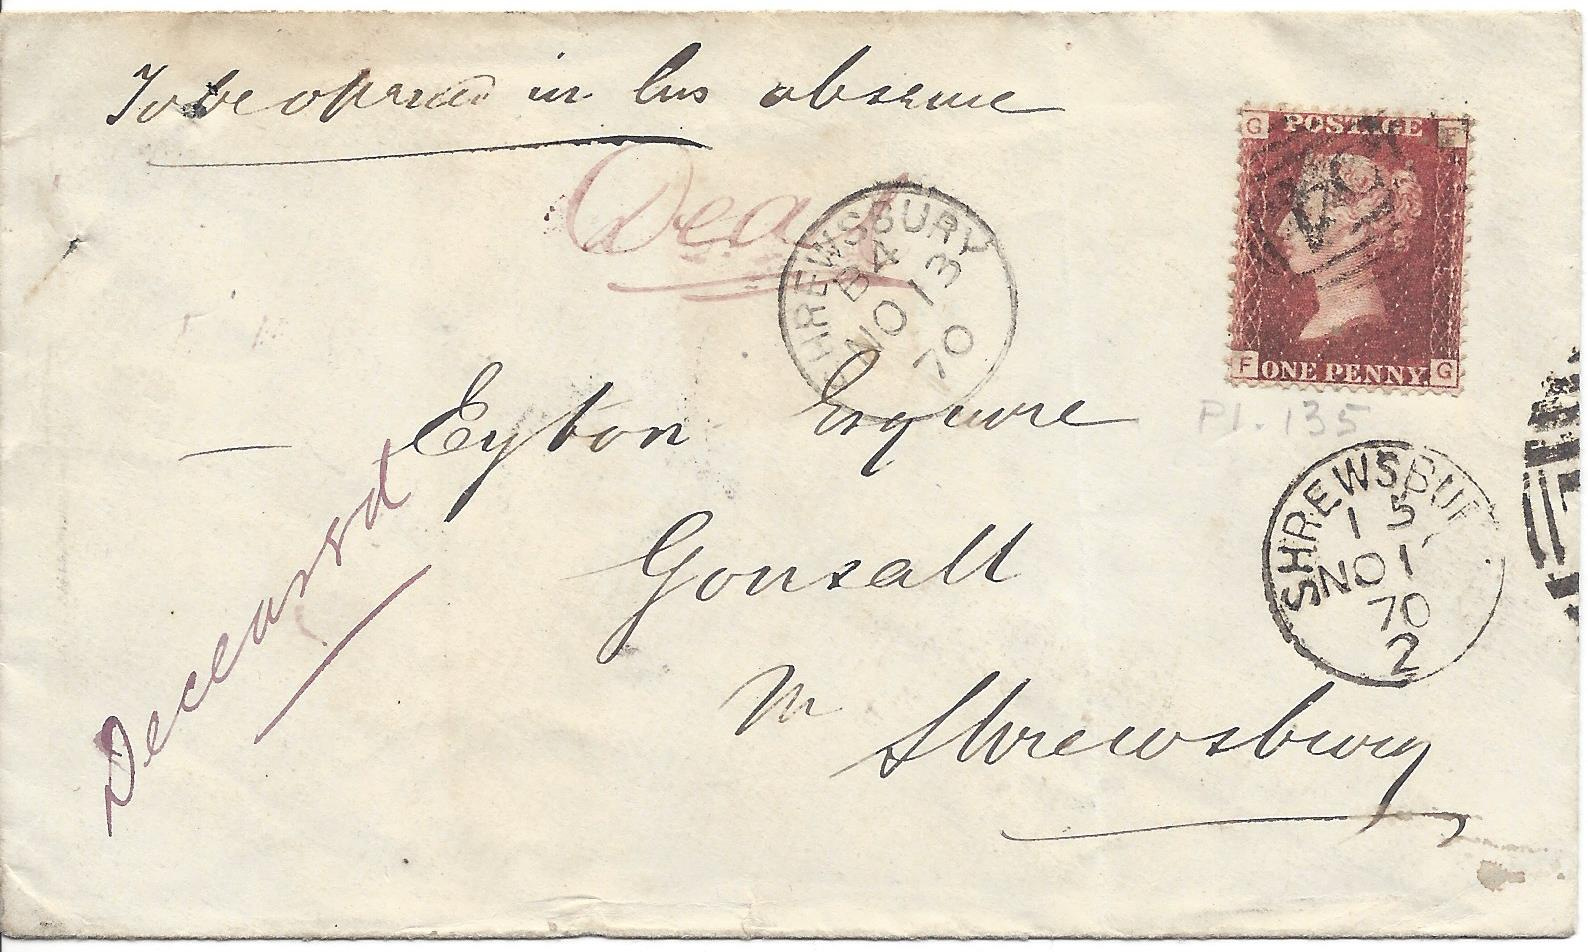 To be opened in his absence
Dead
SHREWSBURY
B4
NO 13
70
G POSTAGE F
F ONE PENNY G
Pl. 135
Eyton Esquire
Deceased
Gonsall
Nr
Shrewsbury
SHREWSBU
15
NO 1
70
2